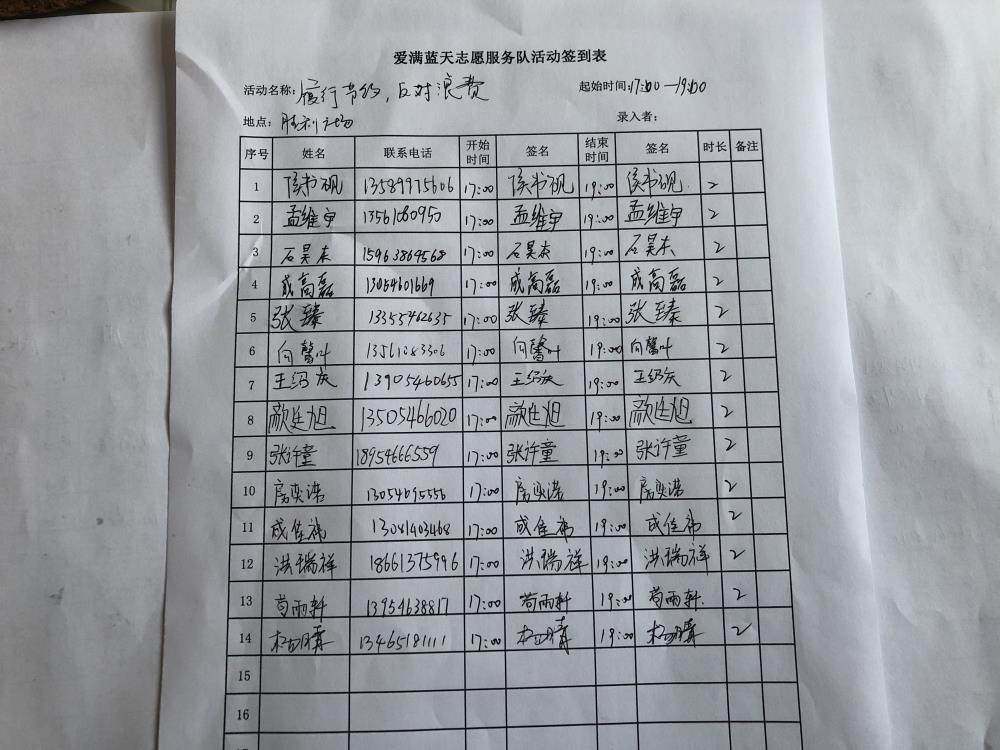 爱满蓝天志愿服务队活动签到表
活动名称: 履行节约,反对浪费 起始时间:17:00—19:00
地点: 胜利广场 录入者:
序号 姓名 联系电话 开始时间 签名 结束时间 签名 时长 备注
1 侯书砚 13589975606 17:00 侯书砚 19:00 侯书砚 2
2 孟维宇 13561080950 17:00 孟维宇 19:00 孟维宇 2
3 石昊东 15963869568 17:00 石昊东 19:00 石昊东 2
4 成高磊 13054601669 17:00 成高磊 19:00 成高磊 2
5 张臻 13355462635 17:00 张臻 19:00 张臻 2
6 向馨叶 13561083306 17:00 向馨叶 19:00 向馨叶 2
7 王绍庆 13905460655 17:00 王绍庆 19:00 王绍庆 2
8 颜廷旭 13505466020 17:00 颜廷旭 19:00 颜廷旭 2
9 张许童 18954666559 17:00 张许童 19:00 张许童 2
10 房奕浩 13054695556 17:00 房奕浩 19:00 房奕浩 2
11 成佳祎 13081403468 17:00 成佳祎 19:00 成佳祎 2
12 洪瑞祥 18661375996 17:00 洪瑞祥 19:00 洪瑞祥 2
13 苟雨轩 13954638817 17:00 苟雨轩 19:00 苟雨轩 2
14 13465181111 17:00 19:00 2
15
16